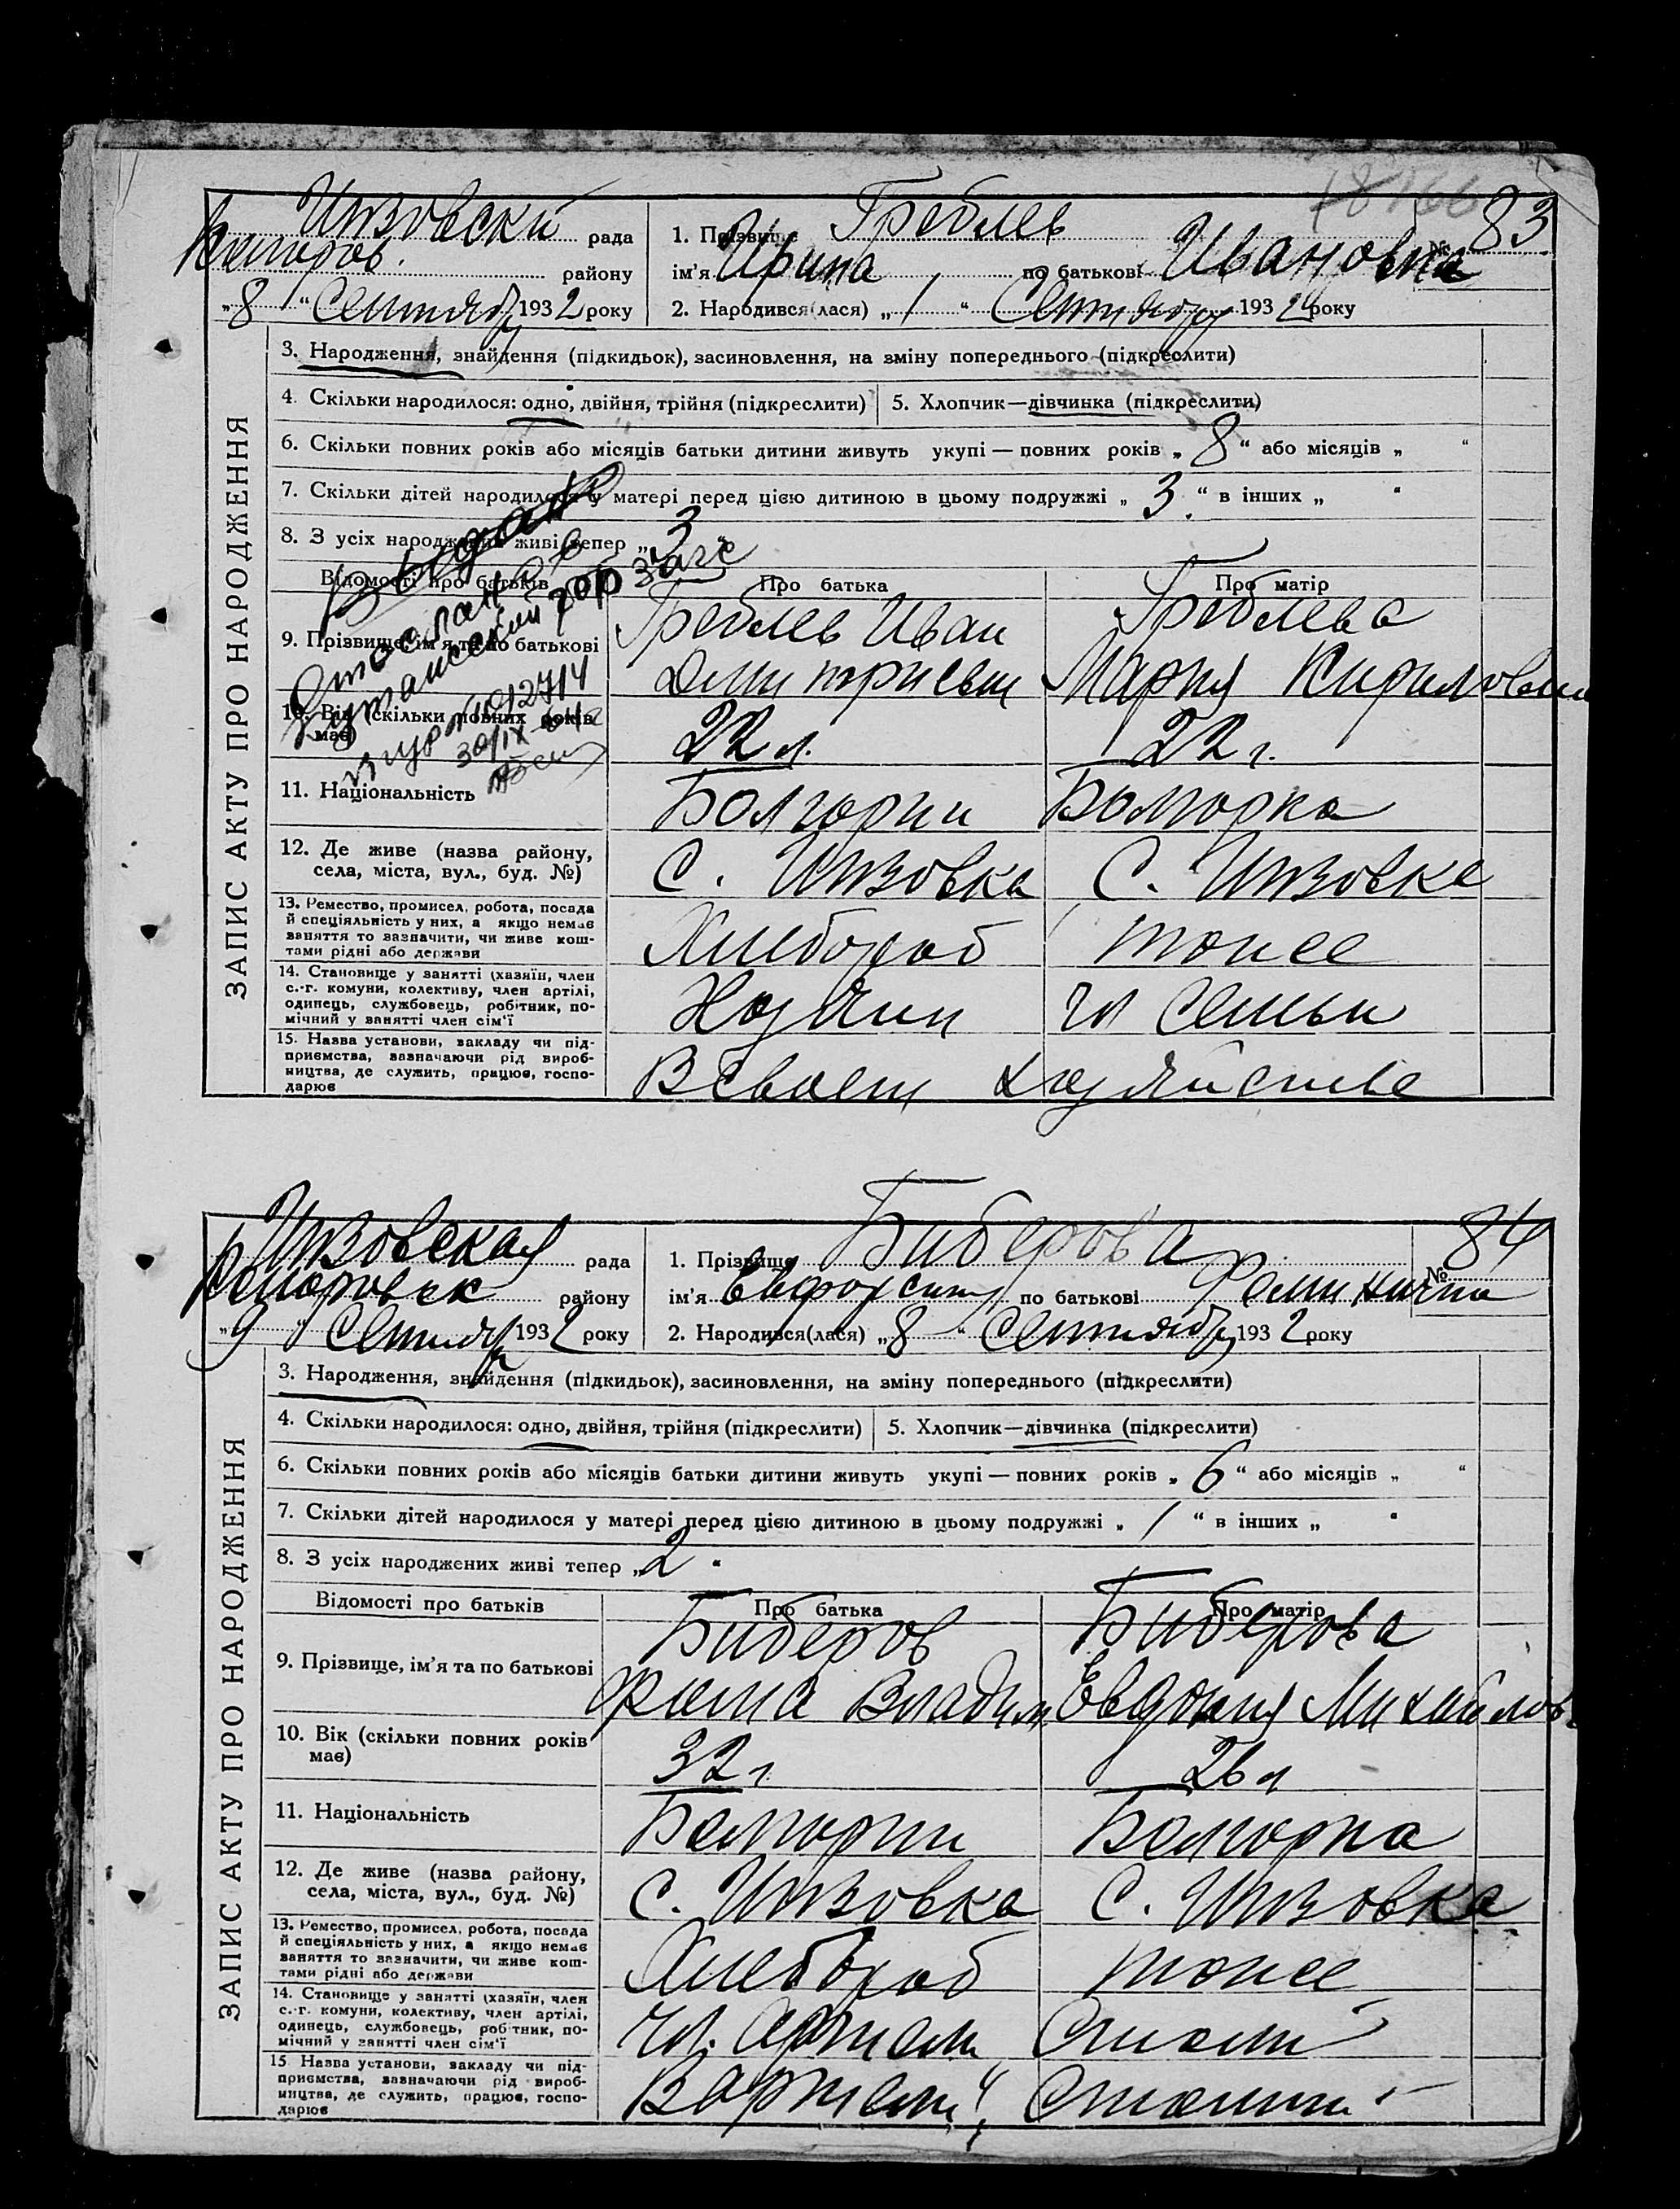 Инзовски рада
район
„8“ Сентябр 1932 року
1. Прізвище Греблев № 83
ім'я Ирина по батькові Ивановна
2. Народився(лася) „1“ Сентябр 1932 року
ЗАПИС АКТУ ПРО НАРОДЖЕННЯ
3. Народження, знайдення (підкидьок), засиновлення, на зміну попереднього (підкреслити)
4. Скільки народилося: одно, двійня, трійня (підкреслити) 5. Хлопчик—дівчинка (підкреслити)
6. Скільки повних років або місяців батьки дитини живуть укупі — повних років „8“ або місяців „ “
7. Скільки дітей народилося у матері перед цією дитиною в цьому подружжі „3“ в інших „ “
8. З усіх народжених живі тепер „3“
Відомості про батьків Про батька Про матір
9. Прізвище, ім'я та по батькові Греблев Иван Греблева
Дмитриевич Мария Кириловна
10. Вік (скільки повних років має) 22 л. 22 г.
11. Національність Болгарин Болгорка
12. Де живе (назва району, С. Инзовка С. Инзовка
села, міста, вул., буд. №)
13. Ремество, промисел, робота, посада
й спеціяльність у них, а якщо немає
заняття то зазначити, чи живе кош- Хлебороб тоже
тами рідні або держави
14. Становище у занятті (хазяїн, член
с.-г. комуни, колективу, член артілі,
одинець, службовець, робітник, по- Хозяин чл семьи
мічний у занятті член сім'ї
15. Назва установи, закладу чи під-
приємства, зазначаючи рід вироб-
ництва, де служить, працює, госпо- В своем хозяйстве
дарює
Инзовская рада
району
„9“ Сентябр 1932 року
1. Прізвище Биберова № 84
ім'я по батькові Фоминична
2. Народився(лася) „8“ Сентябр 1932 року
ЗАПИС АКТУ ПРО НАРОДЖЕННЯ
3. Народження, знайдення (підкидьок), засиновлення, на зміну попереднього (підкреслити)
4. Скільки народилося: одно, двійня, трійня (підкреслити) 5. Хлопчик—дівчинка (підкреслити)
6. Скільки повних років або місяців батьки дитини живуть укупі — повних років „6“ або місяців „ “
7. Скільки дітей народилося у матері перед цією дитиною в цьому подружжі „1“ в інших „ “
8. З усіх народжених живі тепер „2“
Відомості про батьків Про батька Про матір
9. Прізвище, ім'я та по батькові Биберов Биберова
Фома Владим Евдокия Михайлов
10. Вік (скільки повних років має) 32 г. 26 л
11. Національність Болгорин Болгорка
12. Де живе (назва району, С. Инзовка С. Инзовка
села, міста, вул., буд. №)
13. Ремество, промисел, робота, посада
й спеціяльність у них, а якщо немає
заняття то зазначити, чи живе кош- Хлебороб тоже
тами рідні або держави
14. Становище у занятті (хазяїн, член
с.-г. комуни, колективу, член артілі,
одинець, службовець, робітник, по- чл. артели
мічний у занятті член сім'ї
15. Назва установи, закладу чи під-
приємства, зазначаючи рід вироб-
ництва, де служить, працює, госпо- В артели „Сталин“
дарює